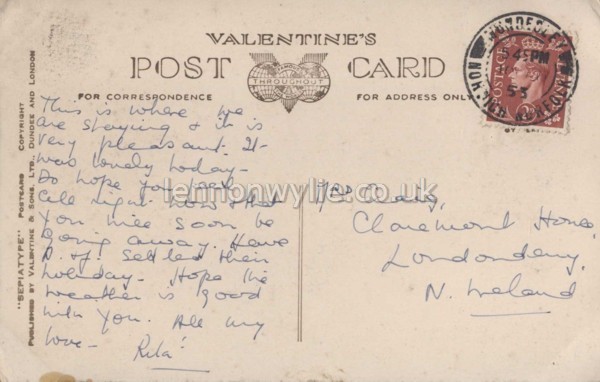 VALENTINE'S
POST CARD
THROUGHOUT
FOR CORRESPONDENCE
FOR ADDRESS ONLY
"SEPIATYPE" POSTCARD COPYRIGHT
PUBLISHED BY VALENTINE & SONS. LTD., DUNDEE AND LONDON
MUNDESLEY
5 45 PM
53
NORWICH NORFOLK
POSTAGE
This is where we
are staying & it is
very pleasant. It
was lovely today -
Do hope you are
all right now & that
you will soon be
going away. Have
settled their
holiday - Hope the
weather is good
with you. All my
love - Rita
Mrs Craig,
Claremont House,
Londonderry,
N. Ireland
lennonwylie.co.uk